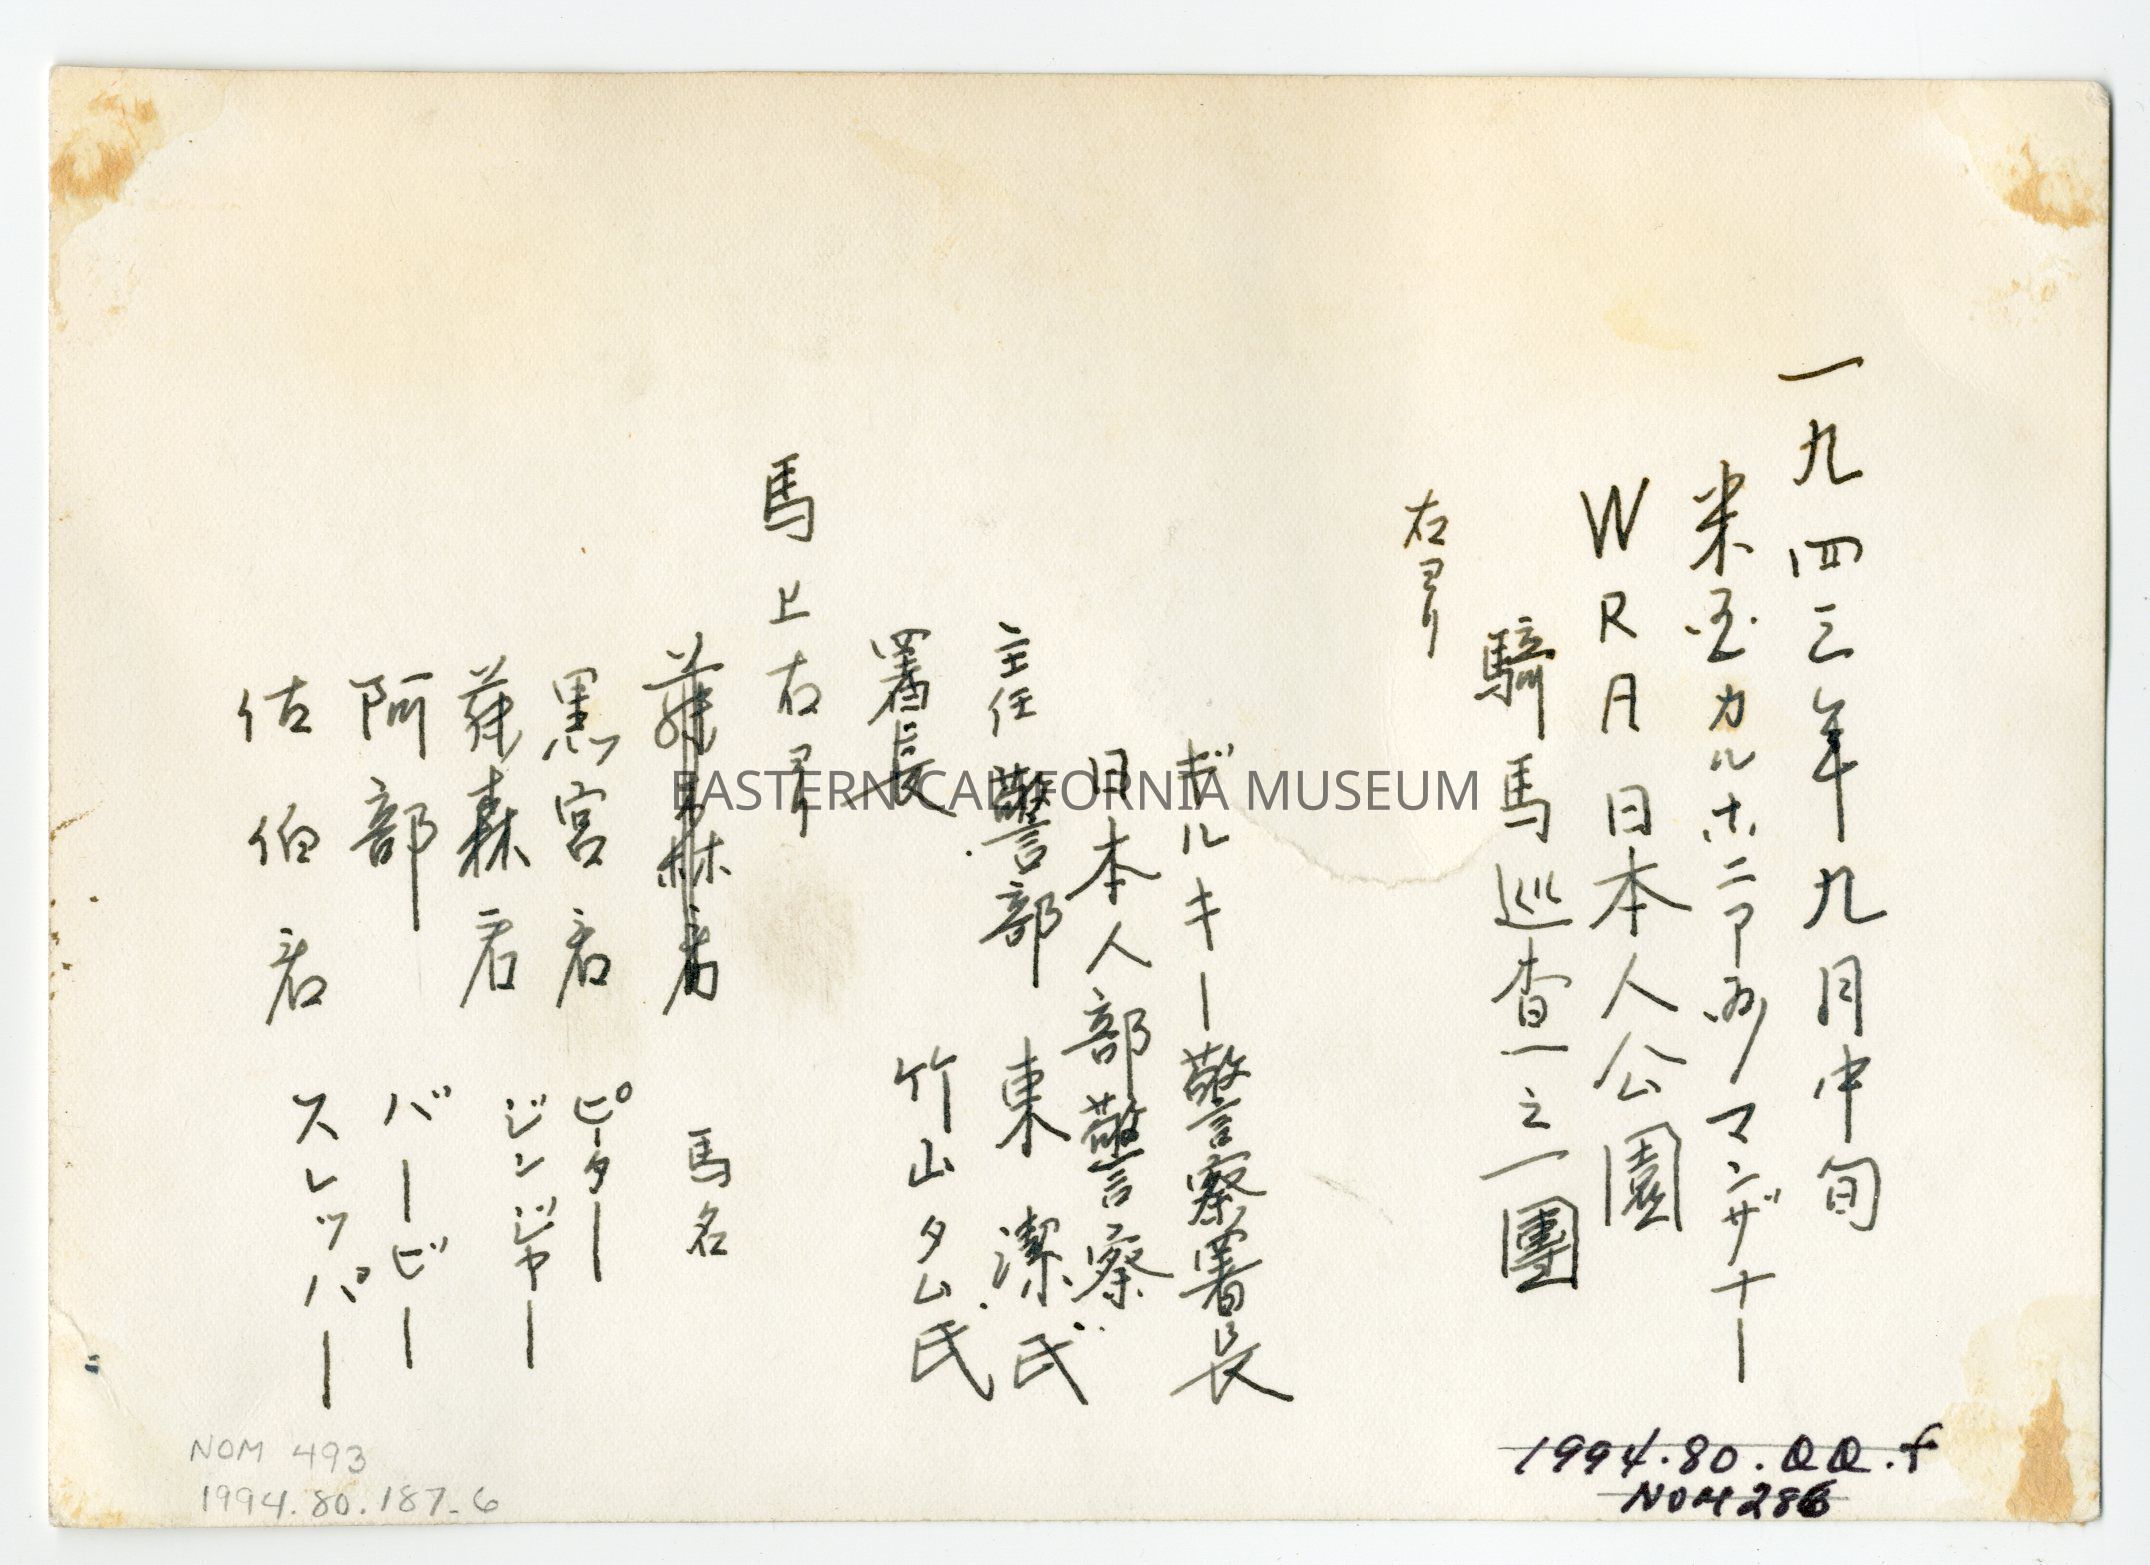 一九四三年九月中旬
米国カルホニア州マンザナー
WRA日本人公園
騎馬巡査一之一團
右ヨリ
ギルキー警察署長
日本人部警察
主任警部 東 潔氏
署長 竹山タム氏
馬上右ヨリ
馬名
黒宮君 ピーター
藤森君 ジンジャー
阿部 バービー
佐伯君 スレッパー
EASTERN CALIFORNIA MUSEUM
NOM 493
1994.80.187.6
1994.80.QQ.f
NOM 286